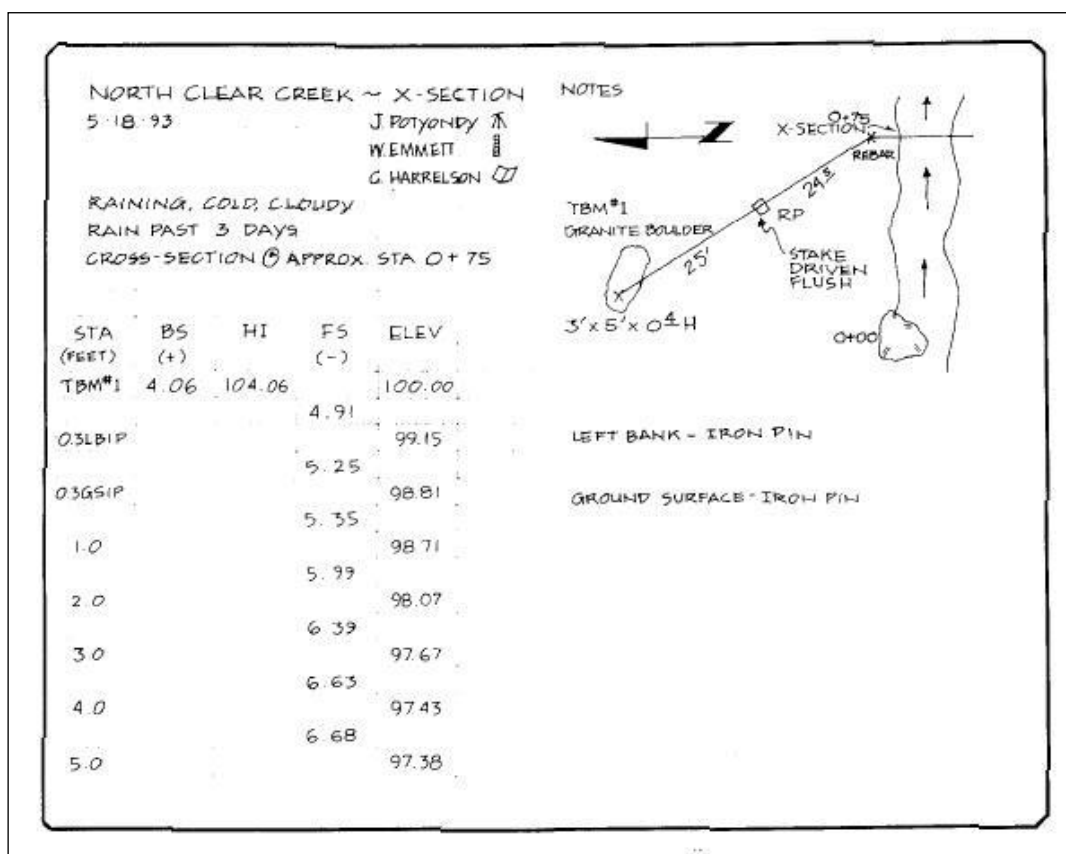 NORTH CLEAR CREEK ~ X-SECTION
5·18·93
J. POTYONDY
W. EMMETT
C. HARRELSON
RAINING, COLD, CLOUDY
RAIN PAST 3 DAYS
CROSS-SECTION @ APPROX. STA 0+75
STA BS HI FS ELEV
(FEET) (+) (-)
TBM#1 4.06 104.06 100.00
4.91
0.3LBIP 99.15
5.25
0.3GSIP 98.81
5.35
1.0 98.71
5.99
2.0 98.07
6.39
3.0 97.67
6.63
4.0 97.43
6.68
5.0 97.38
NOTES
N
0+75
X-SECTION
REBAR
24.5
RP
TBM#1
GRANITE BOULDER
25'
STAKE
DRIVEN
FLUSH
3'x5'x0.4 H
0+00
LEFT BANK - IRON PIN
GROUND SURFACE - IRON PIN